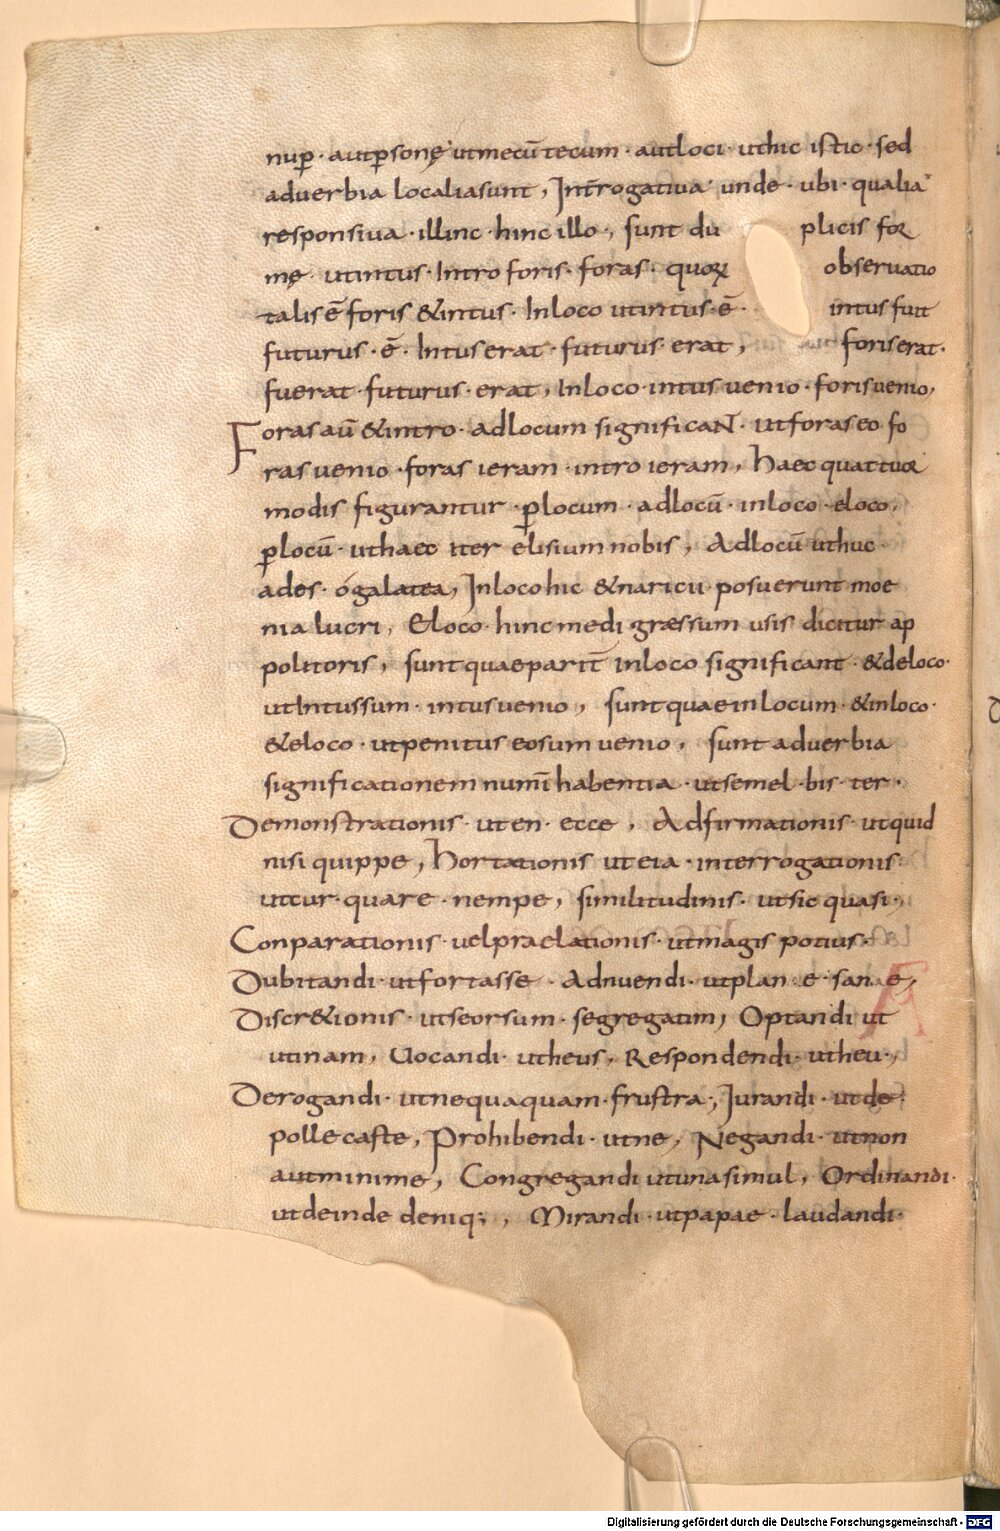 nup̄ · aut p̄sonę ut mecū tecum · aut loci · ut hic istic · sed
aduerbia localia sunt, Int̄rogatiua unde · ubi · qualia
responsiua · illinc · hinc illo, sunt du plicis for
mę · ut intus · Intro foris · foras · quorum obseruatio
talis ē foris & intus · In loco ut intus · ē · intus fuit
futurus · ē · Intus erat · futurus erat, foris erat ·
fuerat · futurus · erat, In loco · intus uenio · foris uenio,
Foras aū & intro · ad locum significaNT · ut foras eo fo
ras uenio · foras ieram · intro ieram, haec quattuor
modis figurantur · p̄ locum · ad locū · in loco · e loco,
p̄ locū · ut haec iter elisium nobis, Ad locū ut huc
ades · ó galatea, In loco hic & naricii posuerunt moe
nia lucri, E loco · hinc medi græssum usis dicitur ap
politoris, sunt quae parit̄ in loco significant · & de loco ·
ut Intus sum · intus uenio, sunt quae in locum · & in loco ·
& e loco · ut penitus eo sum uenio, sunt aduerbia
significationem num̄i habentia · ut semel · bis · ter ·
Demonstrationis · ut en · ecce, Adfirmationis · ut quid
nisi quippe, hortationis ut eia · interrogationis
ut cur · quare · nempe, similitudinis · ut sic quasi ·,
Conparationis · uel praelationis · ut magis potius ·
Dubitandi · ut fortasse · Adnuendi · ut plane · sane,
Discr&ionis · ut seorsum · segregatim, Optandi ut
utinam, Uocandi · ut heus, Respondendi · ut heu ·,
Derogandi · ut nequaquam · frustra, Iurandi · ut de
polle caste, Prohibendi · ut ne, Negandi · ut non
aut minime, Congregandi ut una simul, Ordinandi ·
ut deinde deniq;, Mirandi · ut papae · laudandi ·
Digitalisierung gefördert durch die Deutsche Forschungsgemeinschaft - DFG